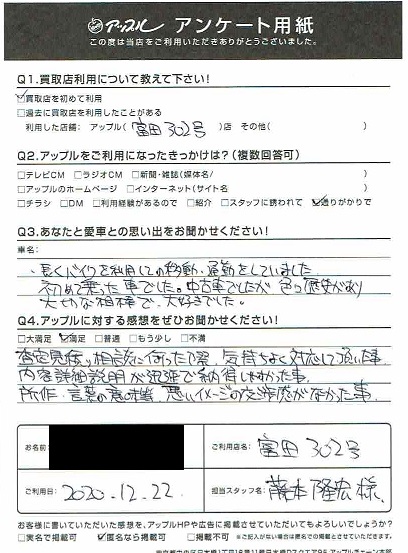 アップル アンケート用紙
この度は当店をご利用いただきありがとうございました。
Q1.買取店利用について教えて下さい!
☑買取店を初めて利用
□過去に買取店を利用したことがある
利用した店舗: アップル( 富田302号 )店 その他( )
Q2.アップルをご利用になったきっかけは?(複数回答可)
□テレビCM □ラジオCM □新聞・雑誌(媒体名/ )
□アップルのホームページ □インターネット(サイト名 )
□チラシ □DM □利用経験があるので □紹介 □スタッフに誘われて ☑通りがかりで
Q3.あなたと愛車との思い出をお聞かせください!
車名:
・長くバイクを利用しての移動・通勤をしていました
初めて乗った車でした。中古車でしたが 色々歴史があり
大切な相棒で、大好きでした。
Q4.アップルに対する感想をぜひお聞かせください!
□大満足 ☑満足 □普通 □もう少し □不満
査定見積り相談に伺った際、気持ちよく対応して頂いた事
内容詳細説明が迅速で納得しやすかった事、
所作・言葉の意味等 悪いイメージの交渉感がなかった事.
お名前:
ご利用店名: 富田302号
ご利用日: 2020.12.22.
担当スタッフ名: 藤本隆宏様
お客様に書いていただいた感想を、アップルHPや広告に掲載させていただいてもよろしいでしょうか?
□実名で掲載可 ☑匿名なら掲載可 □掲載不可 ※ご記入がない場合は匿名での掲載とさせていただきます。